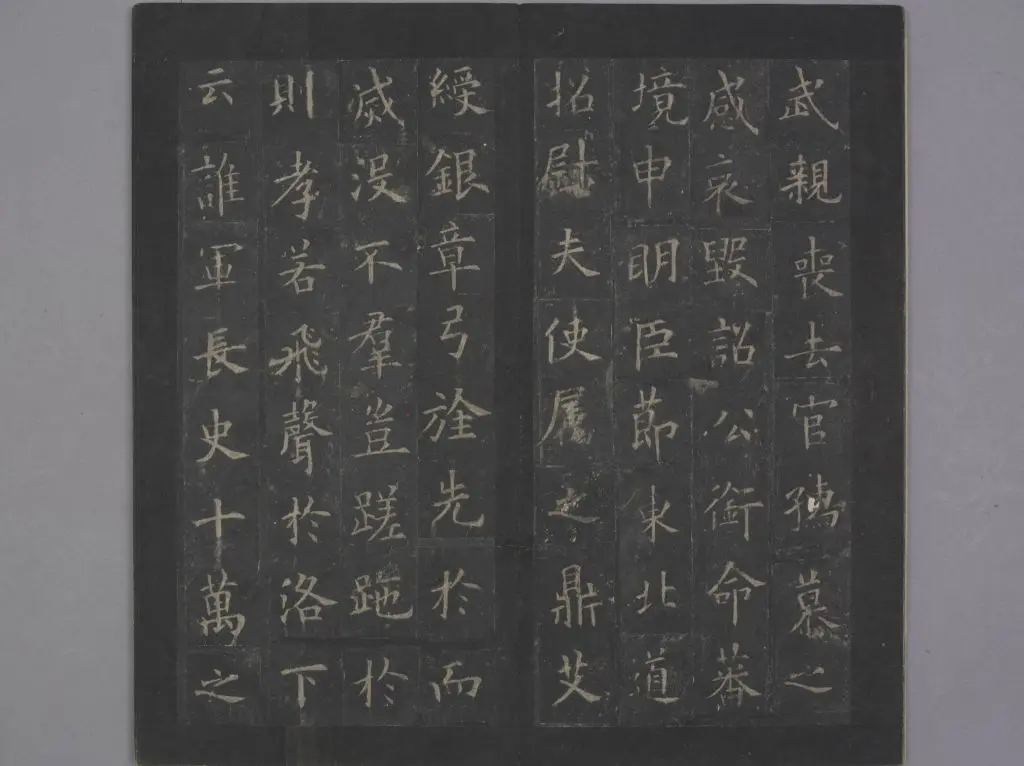 武親喪去官慕之
感哀毀詔公銜命蕃
境申明臣節東北道
招尉夫使屬之鼎艾
綬銀章弓旌先於而
滅沒不羣豈蹉跎於
則孝若飛聲於洛下
云誰軍長史十萬之